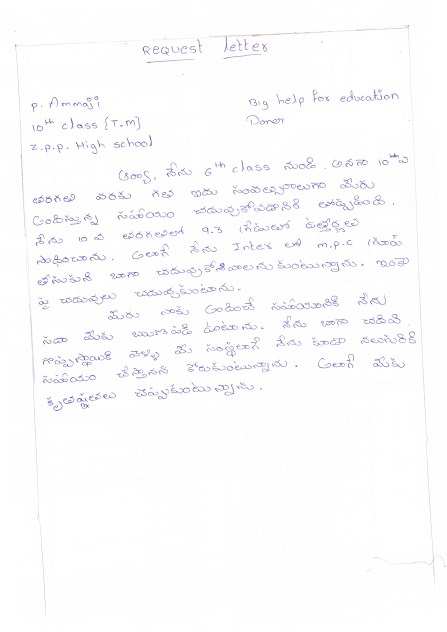 Request letter
P. Ammaji
Big help for education
10th class [T.M]
Doner
Z.P.P. High school
ఆర్య, నేను 6th class నుండి. అనగా 10th వ
తరగతి వరకు గత ఐదు సంవత్సరాలుగా మీరు
అందిస్తున్న సహాయం చదువుకోవడానికి తోడ్పడింది.
నేను 10 వ తరగతిలో 9.3 గ్రేడులో ఉత్తీర్ణత
సాధించాను. అలాగే నేను Inter లో m.p.c గ్రూప్
తీసుకుని బాగా చదువుకోవాలనుకుంటున్నాను. ఇంకా
పై చదువులు చదువుకుంటాను.
మీరు నాకు అందించే సహాయానికి నేను
సదా మీకు ఋణపడి ఉంటాను. నేను బాగా చదివి
గొప్పస్థాయికి వెళ్ళి మీ సంస్థలాగే నేను కూడా నలుగురికి
సహాయం చేస్తానని కోరుకుంటున్నాను. అలాగే మీకు
కృతజ్ఞతలు చెప్పుకుంటున్నాను.